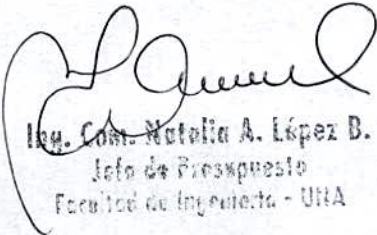 Ing. Com. Natalia A. López B.
Jefa de Presupuesto
Facultad de Ingeniería - UNA